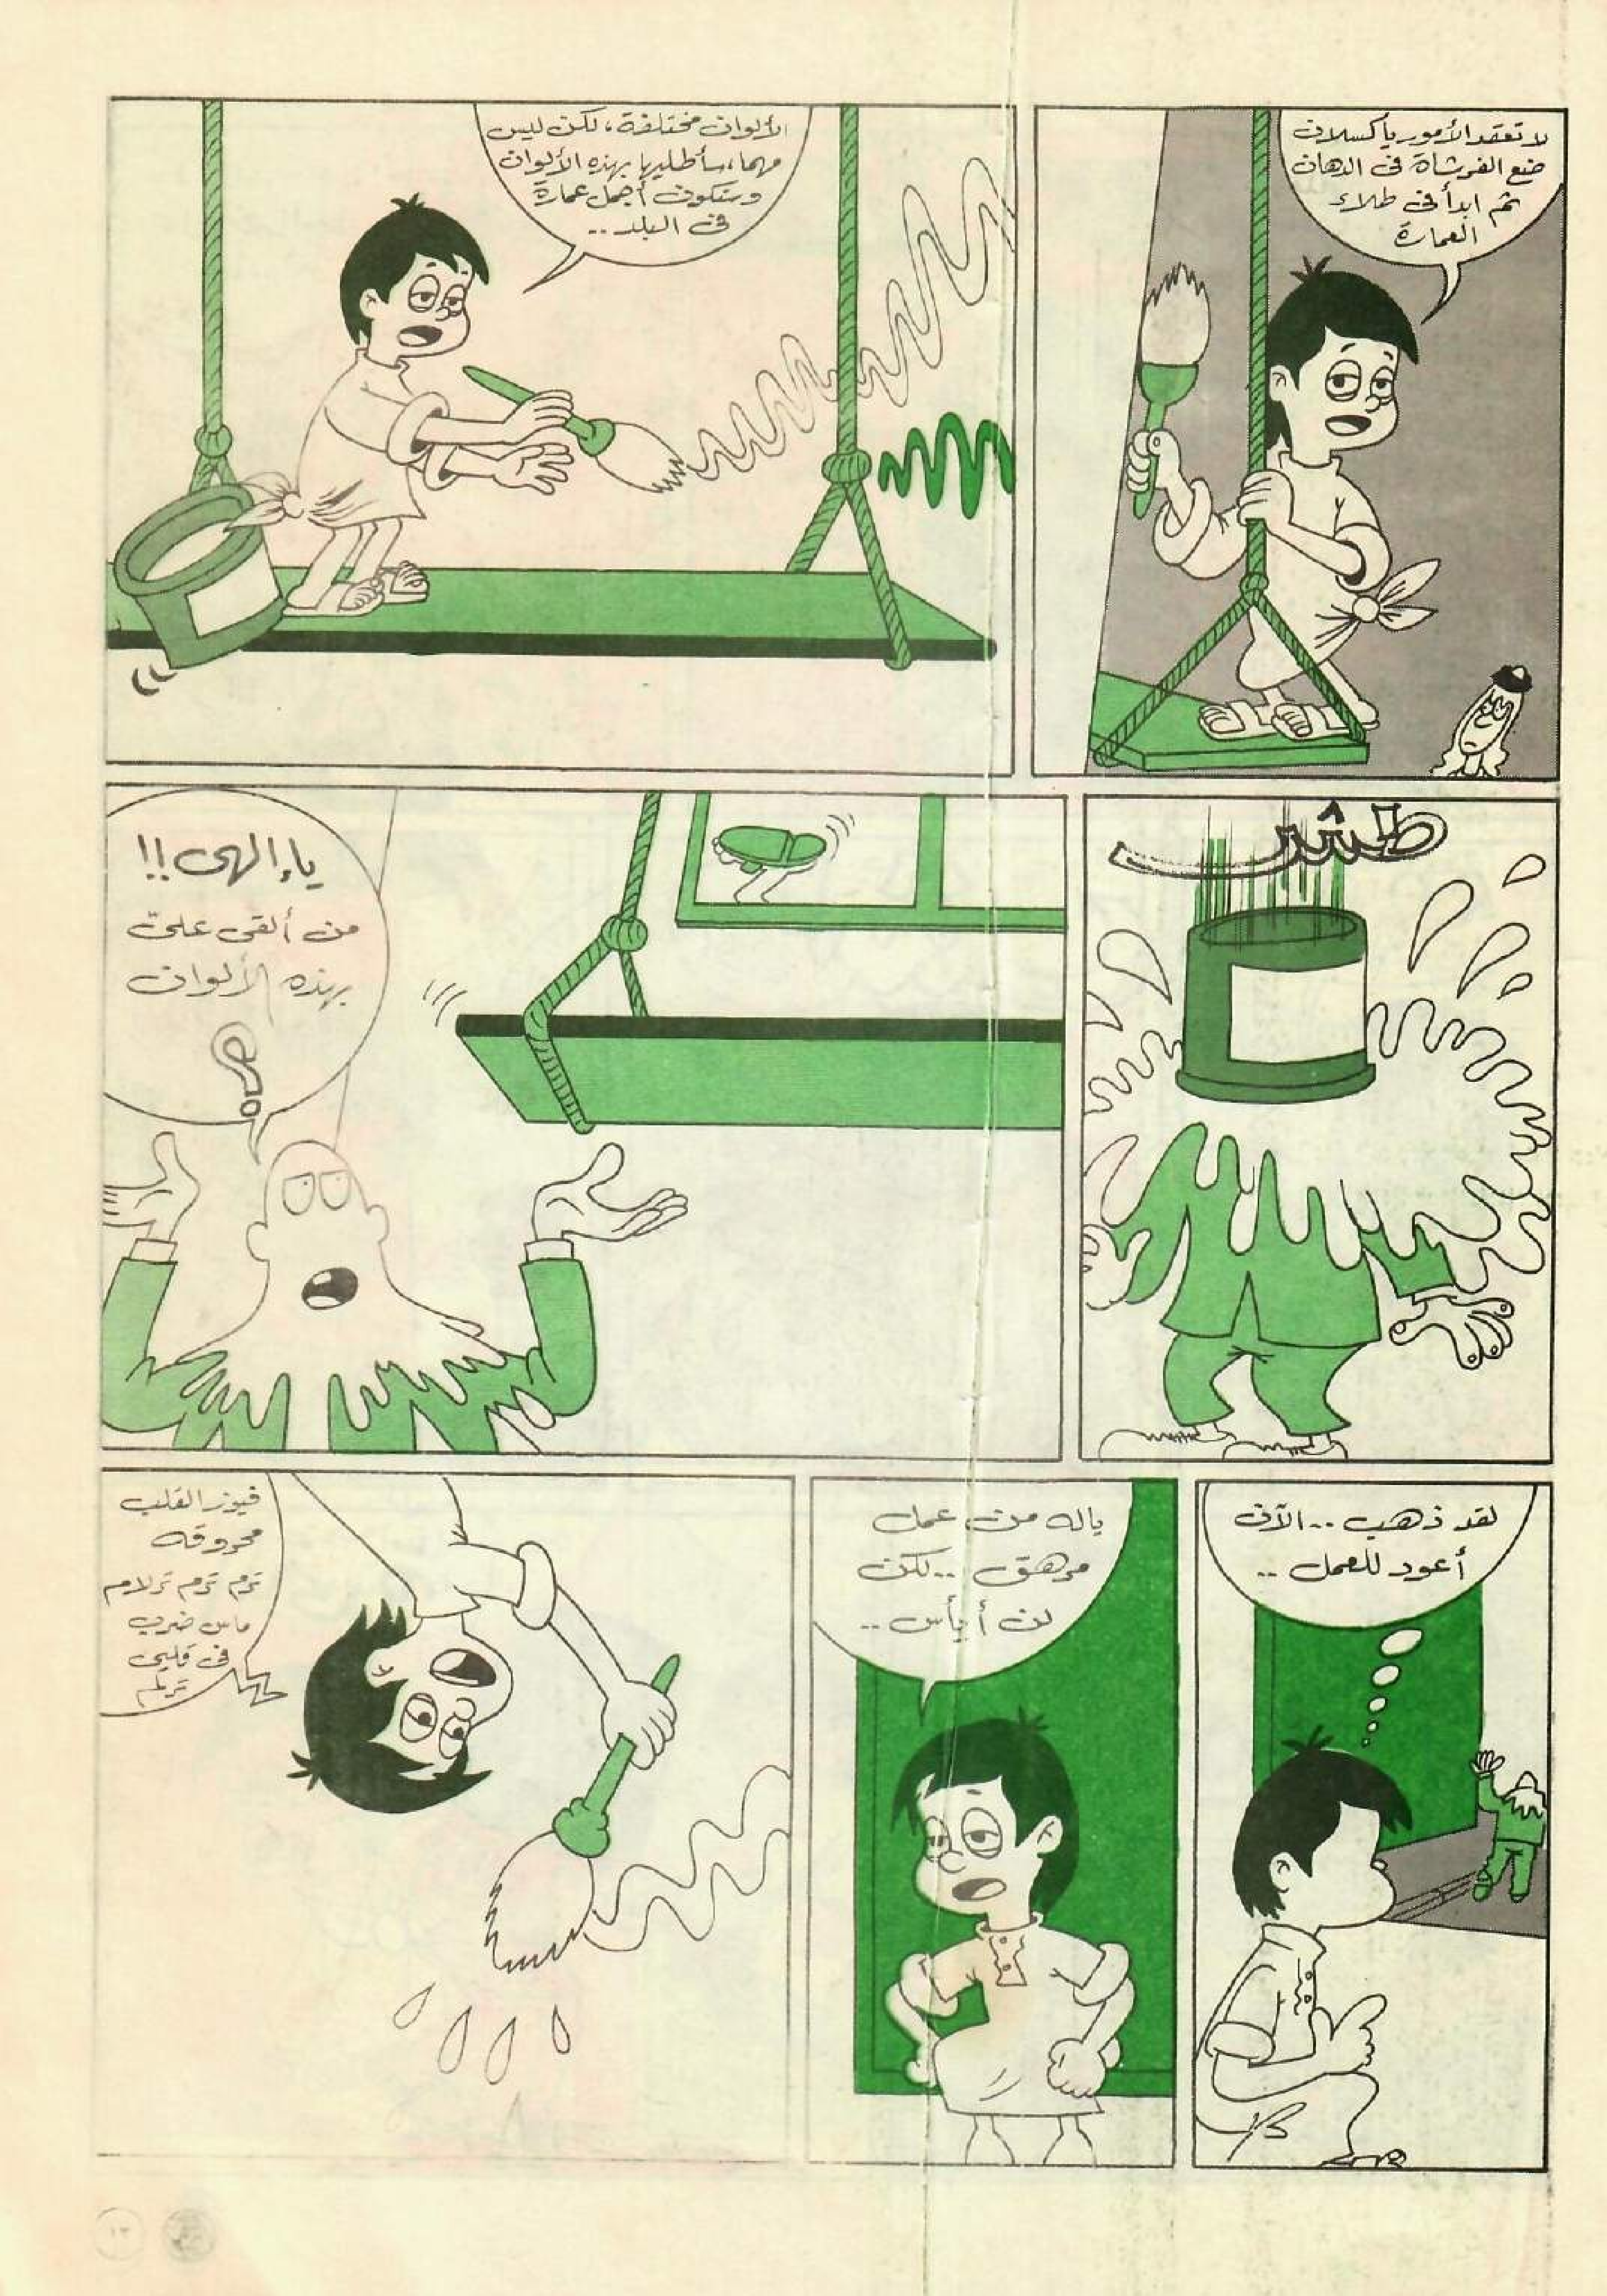 لا تعقد الأمور يا كسلان
ضع الفرشاة فى الدهان
ثم ابدأ فى طلاء
العمارة
الألوان مختلفة، لكن ليس
مهما، سأطليها بهذه الألوان
وستكون أجمل عمارة
فى البلد ..
طش
يا إلهى !!
من ألقى علىّ
بهذه الألوان
؟
لقد ذهب .. الآن
أعود للعمل ..
ياله من عمل
مرهق .. لكن
لن أيأس ..
فيوز القلب
محروقه
ترم ترم ترلام
ماس ضرب
فى قلبى
ترلم
١٣